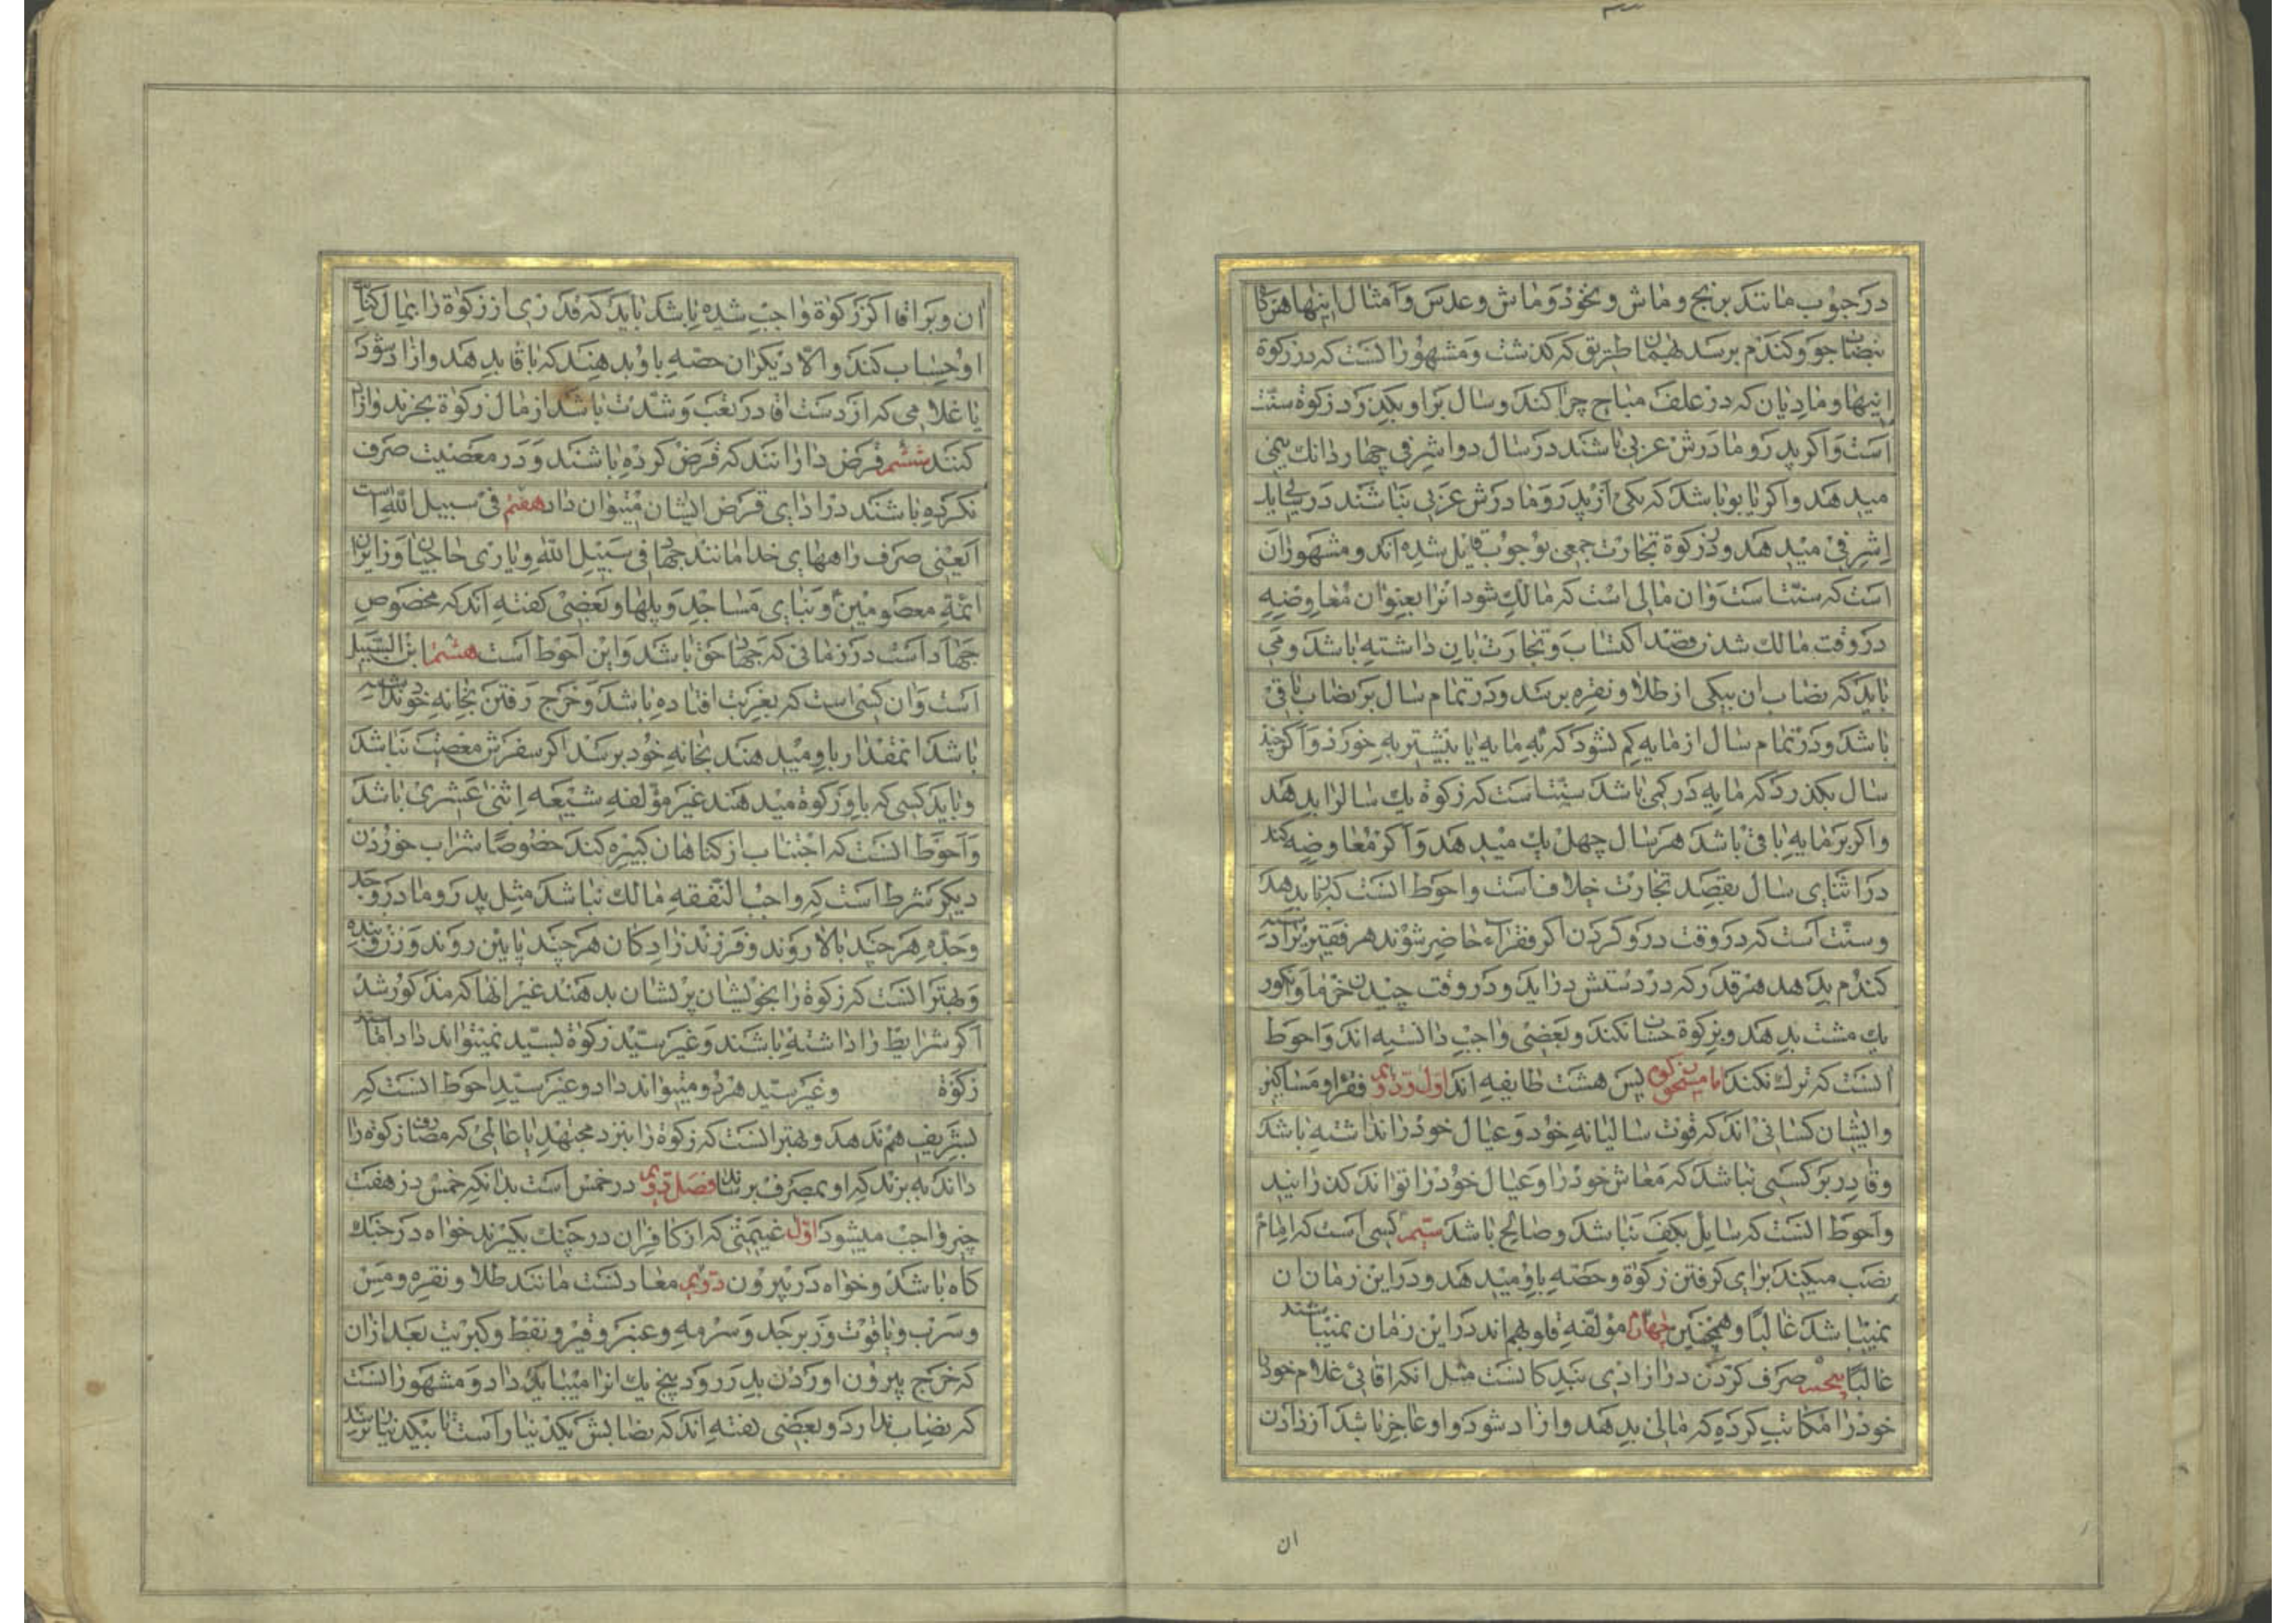 در حبوب مانند برنج و ماش و نخود و ماش و عدس و امثال اینها هرگاه
بنصاب جو و کندم برسد بهمان طریق که کذشت و مشهور آنست که در زکوة
اینها و مادیان که در علف مباح چرا کند و سال بر او بکذرد زکوة سنت
است و اکر پدر و مادرش عربی باشند در سال دو اشرفی چهار دانك ینی
میدهد و اکر یابو باشد که یکی از پدر و مادرش عربی نباشند در سالی یك
اشرفی میدهد و در زکوة تجارت جمعی بوجوب قایل شده اند و مشهور آن
است که سنت است و ان مالی است که مالك شود انرا بعنوان معاوضه
در وقت مالك شدن قصد اکتساب و تجارت بان داشته باشد و می
باید که نصاب ان بیکی از طلا و نقره برسد و در تمام سال بر نصاب باقی
باشد و در تمام سال از مایه کم نشود که به مایه یا بیشتر به خورد و اکر چند
سال بکذرد که مایه در کمی باشد سنت است که زکوة یك سالرا بدهد
و اکر بر مایه باقی باشد هر سال چهل یك میدهد و اکر معاوضه کند
در اثنای سال بقصد تجارت خلاف است و احوط انست که بدهد
و سنت است که در وقت درو کردن اکر فقراء حاضر شوند هر فقیر را دسته
کندم بدهد هر قدر که در دستش دراید و در وقت چیدن خرما و انکور
یك مشت بدهد و بزکوة حساب نکند و بعضی واجب دانسته اند و احوط
انست که ترك نکند اما مستحق زکوة پس هشت طایفه اند اول و دویم فقرا و مساکین
و ایشان کسانی اند که قوت سالیانه خود و عیال خود را نداشته باشد
و قادر بر کسبی نباشد که معاش خود را و عیال خود را تواند کذرانید
و احوط انست که سایل بکف نباشد و صالح باشد سیم کسی است که امام
نصب میکند برای کرفتن زکوة و حصه باو میدهد و در این زمان ان
نمیباشد غالبا و همچنین چهارم مؤلفه قلوبهم اند در این زمان نمیباشند
غالبا پنجم صرف کردن در ازادی بندکانست مثل انکه اقائی غلام خود را
خود را مکاتب کرده که مالی بدهد و ازاد شود و او عاجز باشد از دادن
ان
ان و بر اقا اکر زکوة واجب شده باشد باید که قدری از زکوة را بمال کتابت
او حساب کند و الا دیکران حصه باو بدهند که باقا بدهد و ازاد شود
یا غلامی که از دست اقا در تعب و شدت باشد از مال زکوة بخرند و ازاد
کنند ششم قرض دارانند که قرض کرده باشند و در معصیت صرف
نکرده باشند در ادای قرض ایشان میتوان داد هفتم فی سبیل الله است
یعنی صرف راههای خدا مانند جهاد فی سبیل الله و یاری حاجیان و زایران
ائمه معصومین و بنای مساجد و پلها و بعضی کفته اند که مخصوص
جهاد است در زمانی که جهاد حق باشد و این احوط است هشتم ابن السبیل
است و ان کسی است که بغربت افتاده باشد و خرج رفتن بخانه خود نداشته
باشد انمقدار باو میدهند بخانه خود برسد اکر سفرش معصیت نباشد
و باید کسی که باو زکوة میدهند غیر مؤلفه شیعه اثنی عشری باشد
و احوط انست که اجتناب از کناهان کبیره کند خصوصا شراب خوردن
دیکر شرط است که واجب النفقه مالك نباشد مثل پدر و مادر و جد
و جده هر چند بالا روند و فرزند زادکان هر چند پایین روند و زن و بنده
و بهتر انست که زکوة را بخویشان پریشان بدهند غیر انها که مذکور شد
اکر شرایط را داشته باشند و غیر سید زکوة بسید نمیتواند داد اما سید
زکوة و غیر سید هر دو میتواند داد و غیر سید احوط انست که
بشریف هم ندهد و بهتر انست که زکوة را بنزد مجتهد یا عالمی که مصارف زکوة را
داند به برند که او بمصرف برساند فصل دویم در خمس است بدانکه خمس در هفت
چیز واجب میشود اول غنیمتی که از کافران در جنك بکیرند خواه در جنك
کاه باشد و خواه در بیرون دویم معادنست مانند طلا و نقره و مس
و سرب و یاقوت و زبرجد و سرمه و عنبر و قیر و نفط و کبریت بعد از ان
که خرج بیرون اوردن بدر رود پنج یك انرا میباید داد و مشهور انست
که نصاب ندارد و بعضی کفته اند که نصابش یکدینار است تا بیکدینار نرسد